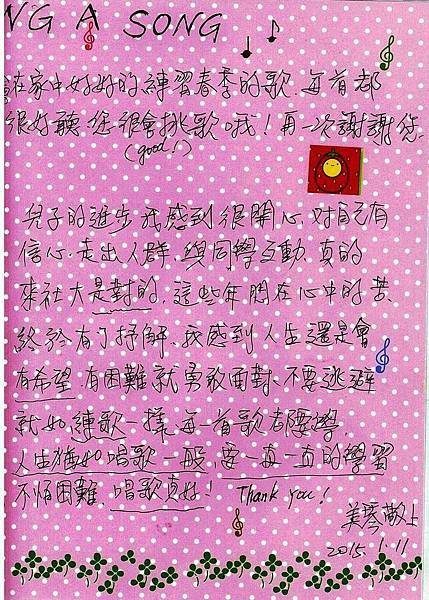 NG A SONG
在家中好好的練習春季的歌.每首都
很好聽.您很會挑歌哦!再一次謝謝您.
(good!)
兒子的進步我感到很開心.對自己有
信心.走出人群.與同學互動.真的
來社大是對的.這些年悶在心中的苦.
終於有了抒解.我感到人生還是會
有希望.有困難就勇敢面對.不要逃避
就如練歌一樣.每一首歌都要學.
人生猶如唱歌一般.要一直一直的學習
不怕困難.唱歌真好! Thank you!
美琴敬上
2015.1.11